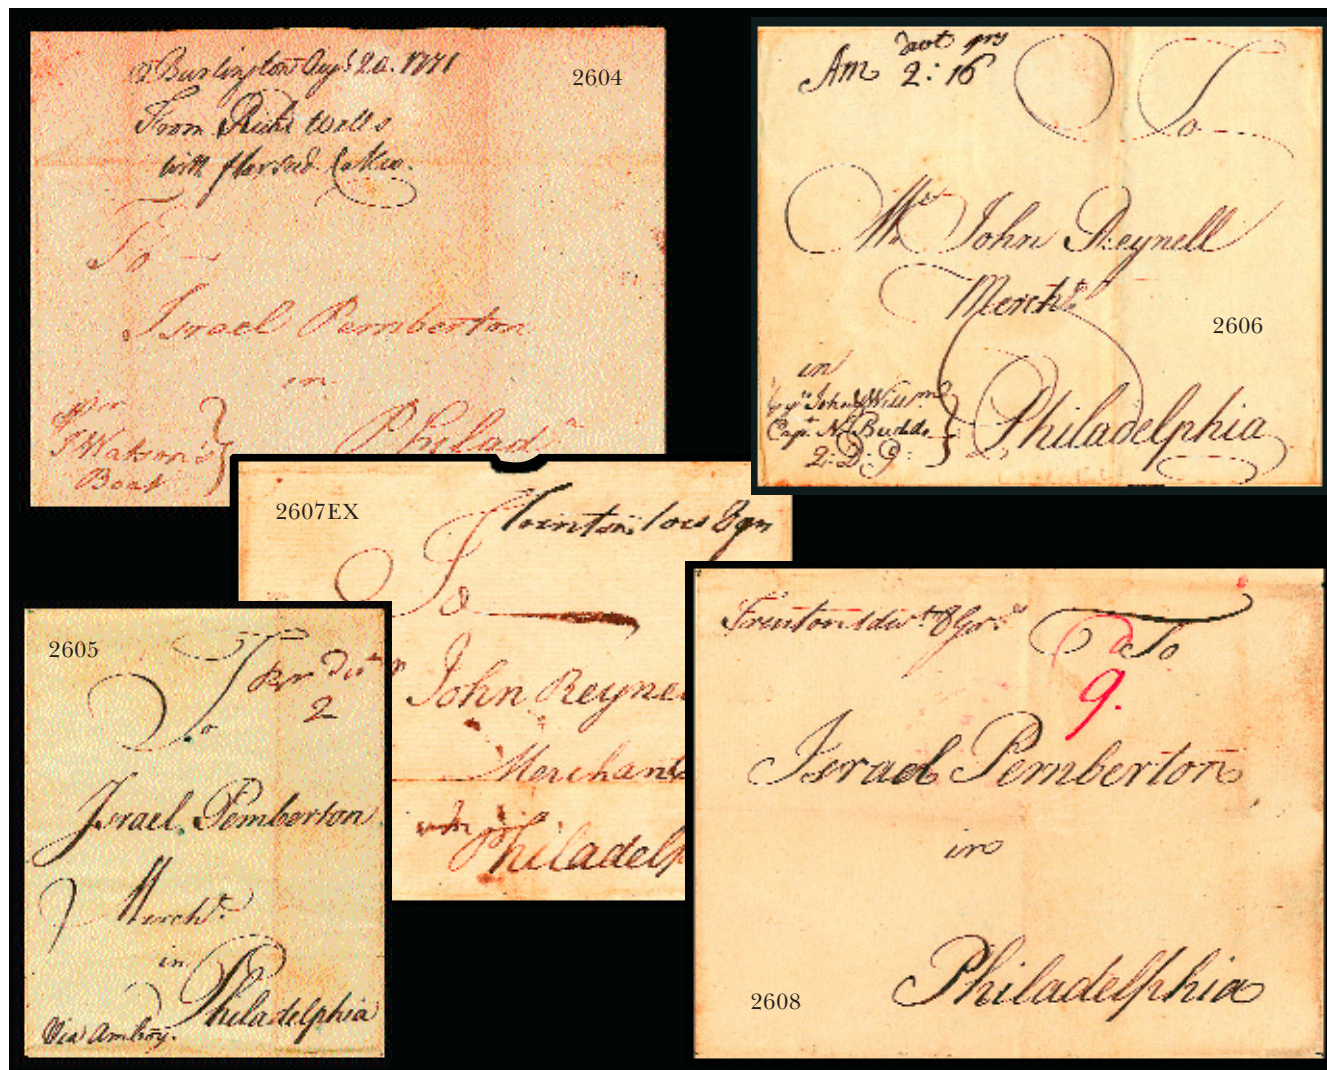 Burlington Augt 20. 1771
2604
From Richd Wells
with
To
Israel Pemberton
in
Philada
Per
J Watson's
Boat
Am 2:16
To
Mr John Reynell
Mercht
2606
in
Philadelphia
Capt N Budds
2607EX
Trenton
To
John Reyne
Merchant
in Philadelp
2605
To
2
Israel Pemberton
Mercht
in
Philadelphia
Via Amboy.
Trenton
To
9.
Israel Pemberton
in
Philadelphia
2608